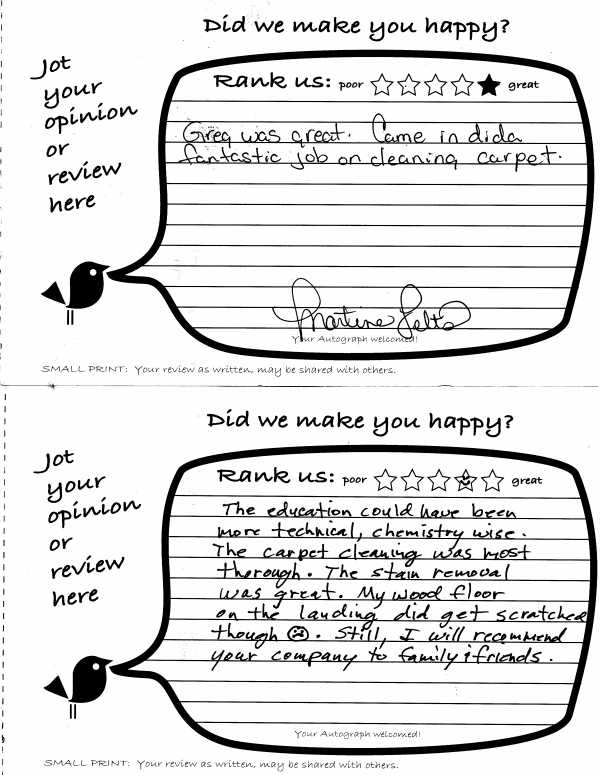 Did we make you happy?
Jot
your
opinion
or
review
here
Rank us: poor great
Greg was great. Came in did a
fantastic job on cleaning carpet.
Martine Felts
Your Autograph welcomed!
SMALL PRINT: Your review as written, may be shared with others.
Did we make you happy?
Jot
your
opinion
or
review
here
Rank us: poor great
The education could have been
more technical, chemistry wise.
The carpet cleaning was most
thorough. The stain removal
was great. My wood floor
on the landing did get scratched
though ☹. Still, I will recommend
your company to family & friends.
Your Autograph welcomed!
SMALL PRINT: Your review as written, may be shared with others.